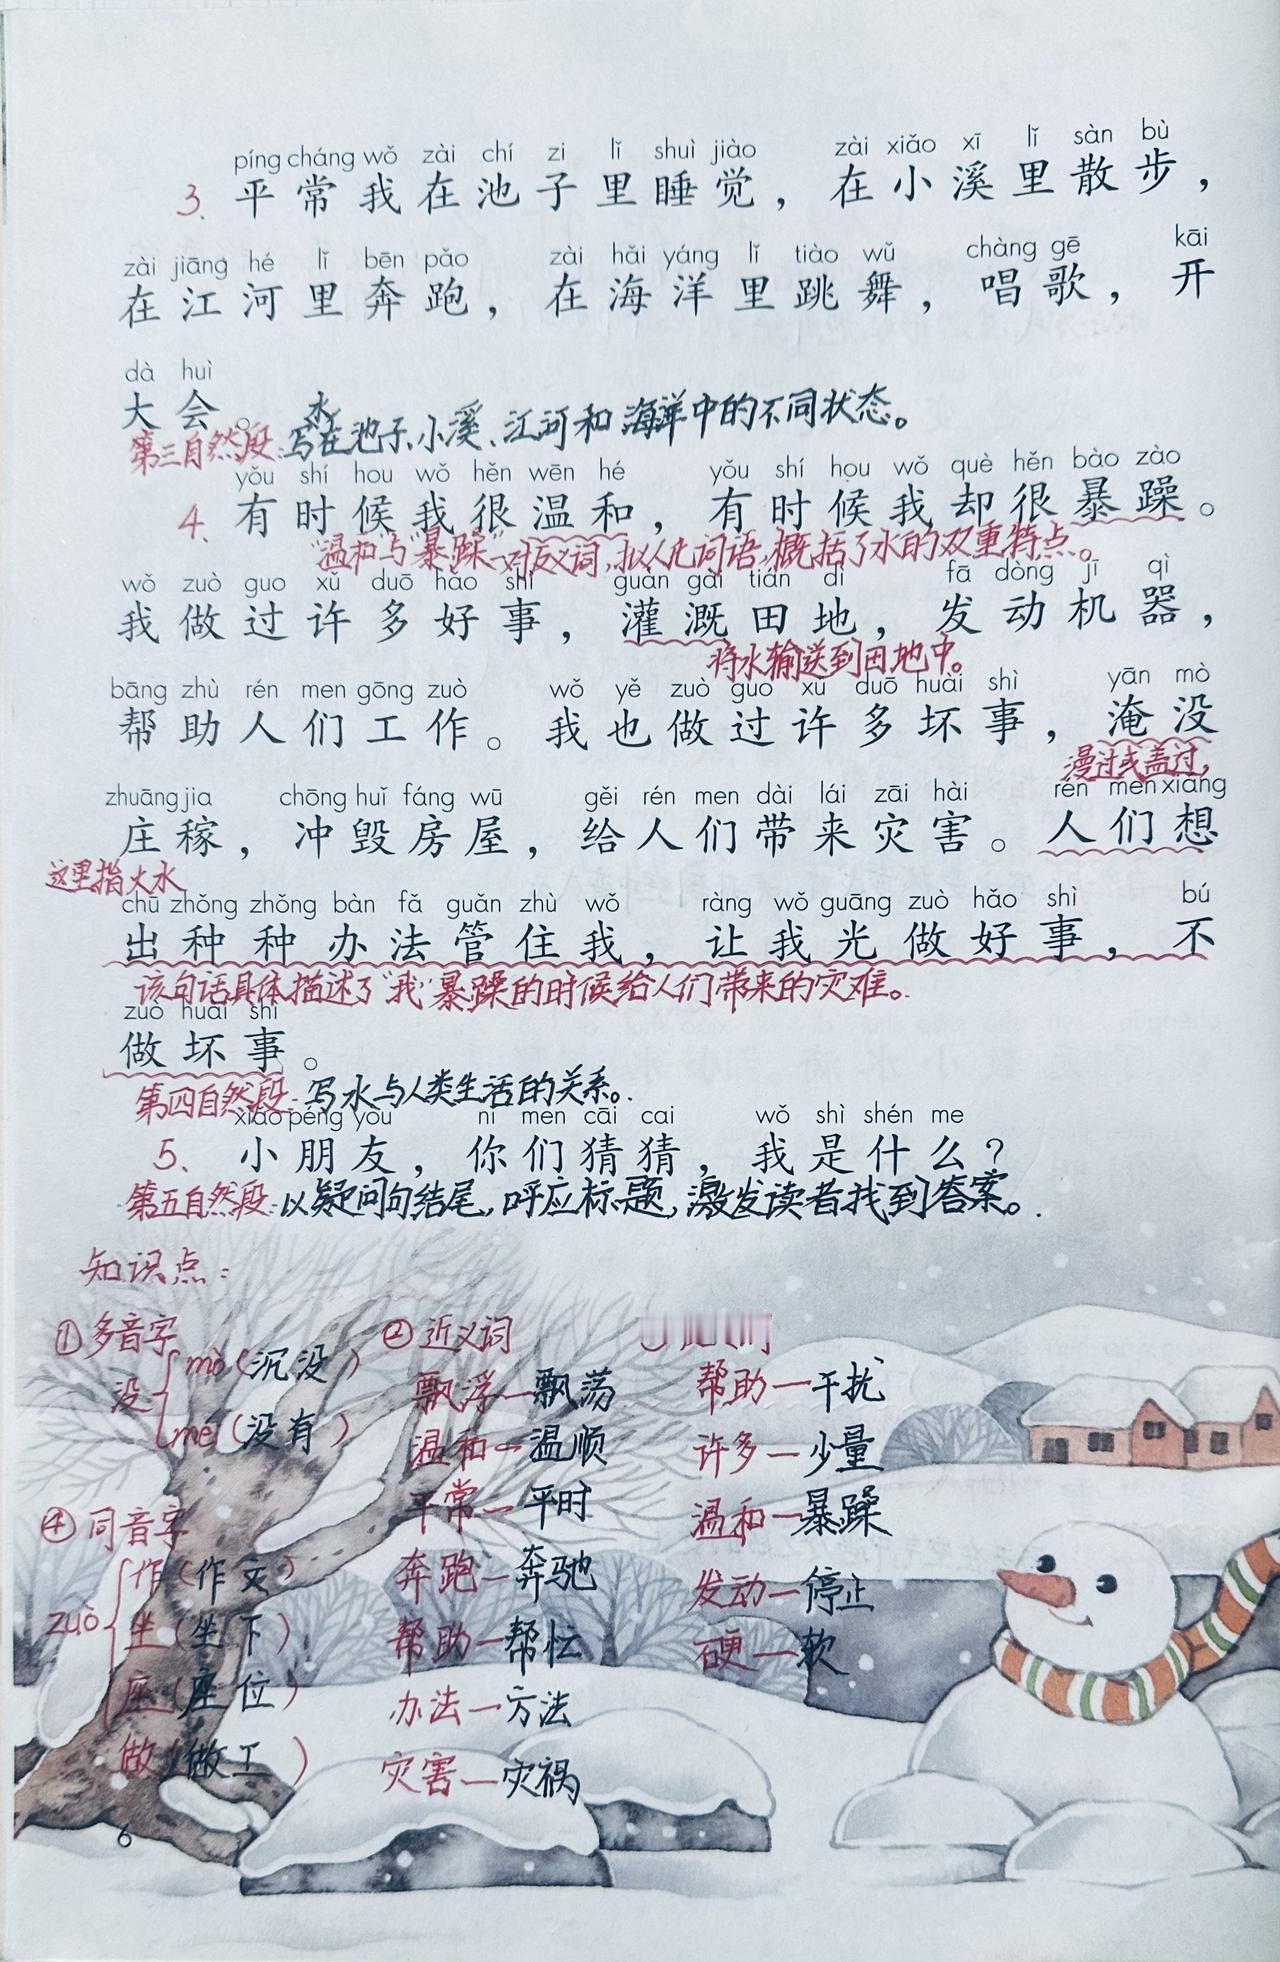 píng cháng wǒ zài chí zi lǐ shuì jiào zài xiǎo xī lǐ sàn bù
3、平常我在池子里睡觉，在小溪里散步，
zài jiāng hé lǐ bēn pǎo zài hǎi yáng lǐ tiào wǔ chàng gē kāi
在江河里奔跑，在海洋里跳舞，唱歌，开
dà huì
大会。
第三自然段：写水在池子、小溪、江河和海洋中的不同状态。
yǒu shí hou wǒ hěn wēn hé yǒu shí hou wǒ què hěn bào zào
4、有时候我很温和，有时候我却很暴躁。
“温和”与“暴躁”一对反义词，拟人化词语，概括了水的双重特点。
wǒ zuò guo xǔ duō hǎo shì guàn gài tián dì fā dòng jī qì
我做过许多好事，灌溉田地，发动机器，
将水输送到田地中。
bāng zhù rén men gōng zuò wǒ yě zuò guo xǔ duō huài shì yān mò
帮助人们工作。我也做过许多坏事，淹没
漫过或盖过，
zhuāng jia chōng huǐ fáng wū gěi rén men dài lái zāi hài rén men xiǎng
庄稼，冲毁房屋，给人们带来灾害。人们想
这里指大水
chū zhǒng zhǒng bàn fǎ guǎn zhù wǒ ràng wǒ guāng zuò hǎo shì bú
出种种办法管住我，让我光做好事，不
该句话具体描述了“我”暴躁的时候给人们带来的灾难。
zuò huài shì
做坏事。
第四自然段：写水与人类生活的关系。
xiǎo péng yǒu nǐ men cāi cai wǒ shì shén me
5、小朋友，你们猜猜，我是什么？
第五自然段：以疑问句结尾，呼应标题，激发读者找到答案。
知识点：
①多音字
没
mò（沉没）
méi（没有）
②近义词
飘浮—飘荡
温和—温顺
平常—平时
奔跑—奔驰
帮助—帮忙
办法—方法
灾害—灾祸
帮助—干扰
许多—少量
温和—暴躁
发动—停止
硬—软
④同音字
zuò
作（作文）
坐（坐下）
座（座位）
做（做工）
6